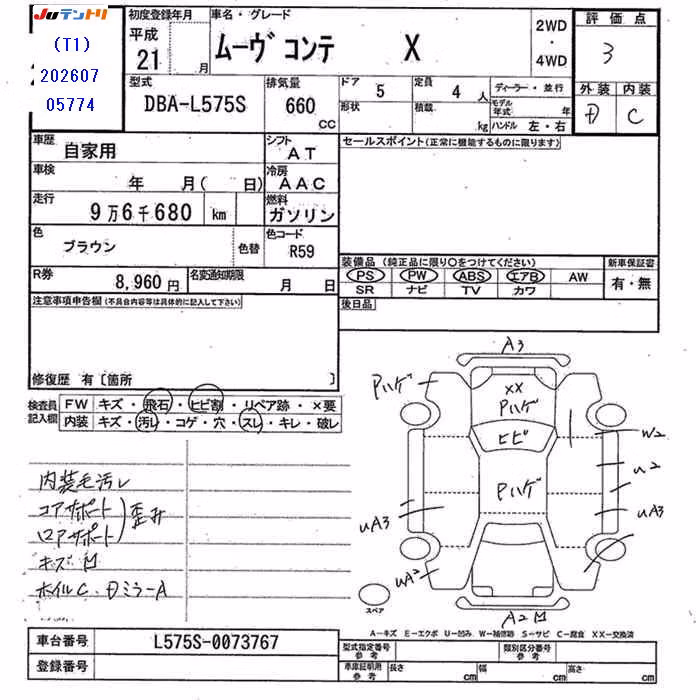 JUテントリ
(T1)
202607
05774
初度登録年月
平成
21
月
車名・グレード
ムーヴ コンテ X
2WD
・
4WD
評価点
3
外装 内装
D C
型式
DBA-L575S
排気量
660
cc
ドア
5
形状
定員
4 人
積載
kg
ディーラー・並行
モデル年式 年
ハンドル 左・右
車歴
自家用
シフト
AT
セールスポイント(正常に機能するものに限ります)
車検
年 月( 日)
冷房
AAC
走行
9万6千680 km
燃料
ガソリン
色
ブラウン
色替
色コード
R59
装備品(純正品に限り○をつけてください)
新車保証書
PS PW ABS エアB AW
有・無
SR ナビ TV カワ
R券
8,960円
名変通知期限
月 日
後日品
注意事項申告欄(不具合内容等は具体的に記入して下さい)
修復歴 有〔箇所 〕
検査員
記入欄
FW キズ・飛石・ヒビ割・リペア跡・×要
内装 キズ・汚レ・コゲ・穴・スレ・キレ・破レ
内装毛汚レ
コアサポート
ロアサポート
歪ミ
キズ M
ホイルC.Dミラー A
A3
Pハゲ
XX
Pハゲ
ヒビ
Pハゲ
W2
U2
UA3
UA3
UA2
A2M
スペア
A-キズ E-エクボ U-凹み W-補修跡 S-サビ C-腐食 XX-交換済
車台番号
L575S-0073767
登録番号
型式指定番号
参考
類別区分番号
参考
車庫証明用
参考
長さ cm 幅 cm 高さ cm